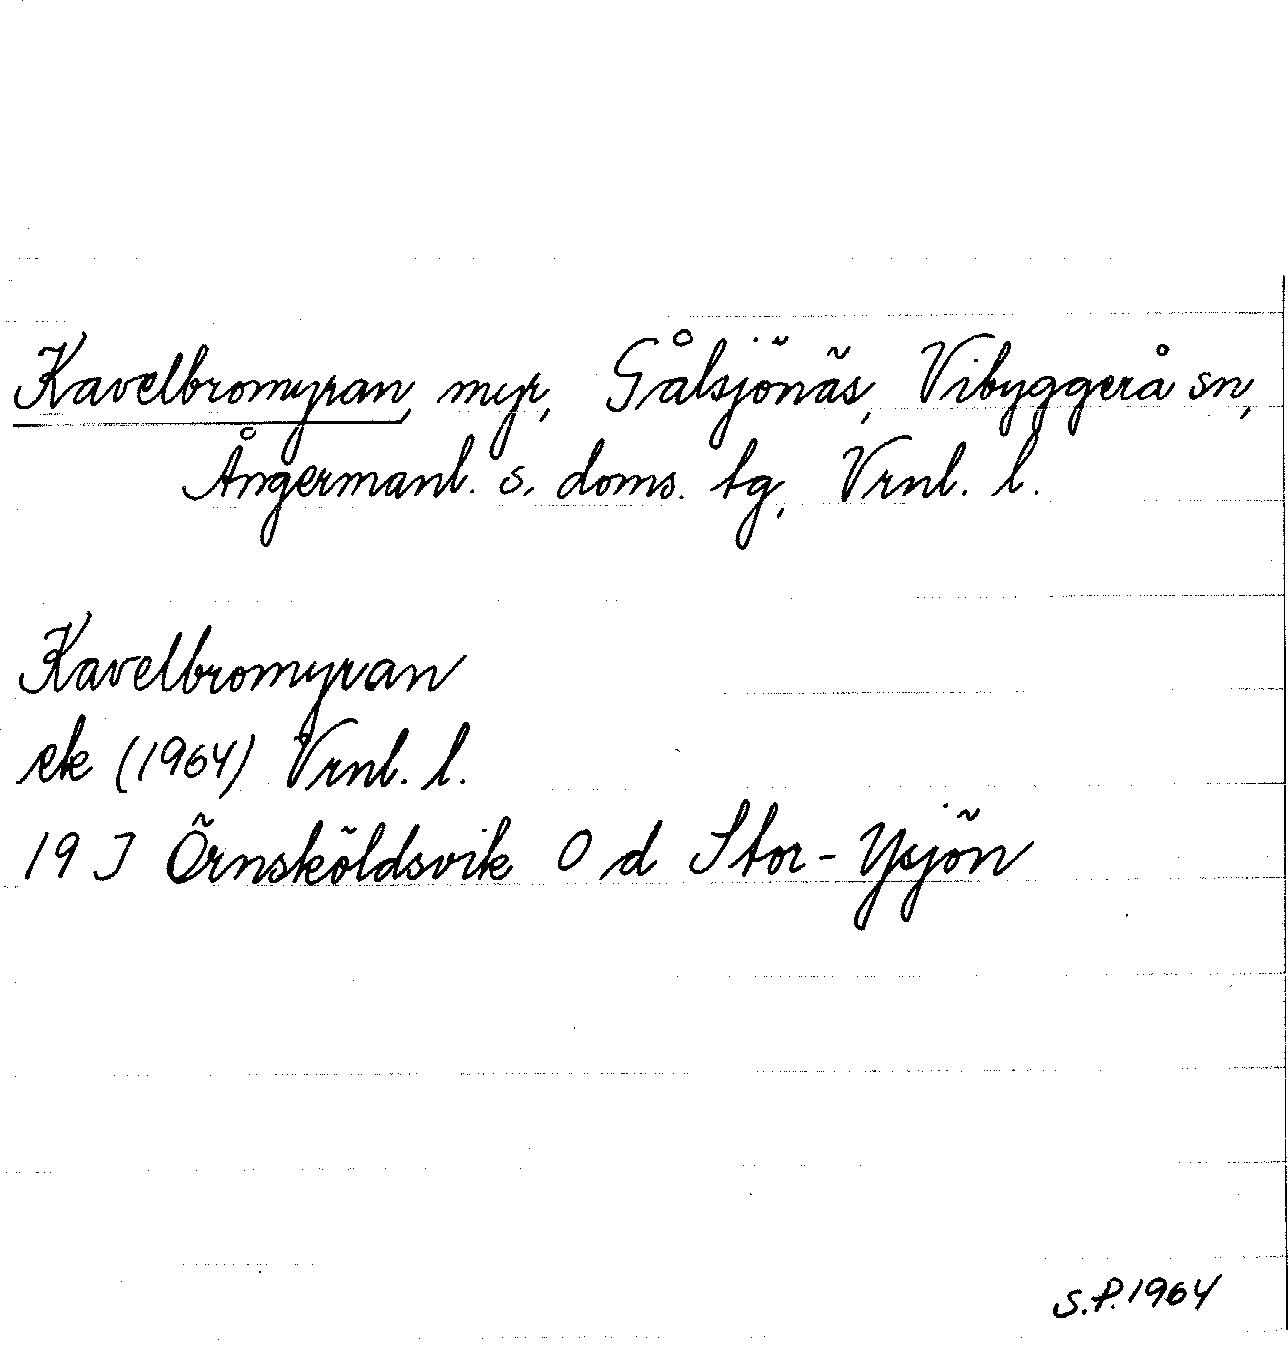 Kavelbromyran, myr, Gålsjönäs, Vibyggerå sn,
Ångermanl. s. doms. tg, Vrnl. l.
Kavelbromyran
ek (1964) Vrnl. l.
19 J Örnsköldsvik O d Stor-Ysjön
S.P. 1964